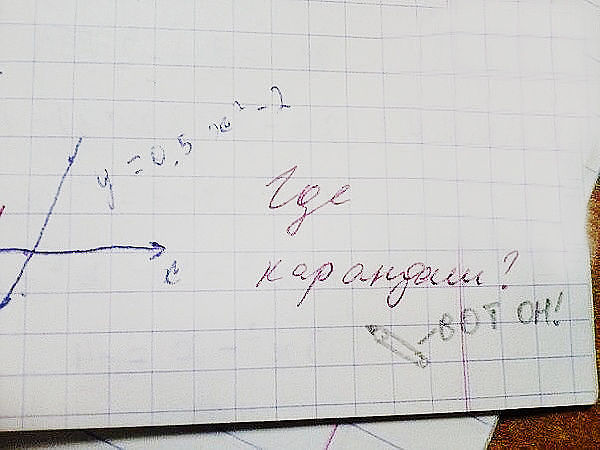 y = 0,5 x² - 2
x
Где
карандаш?
- ВОТ ОН!